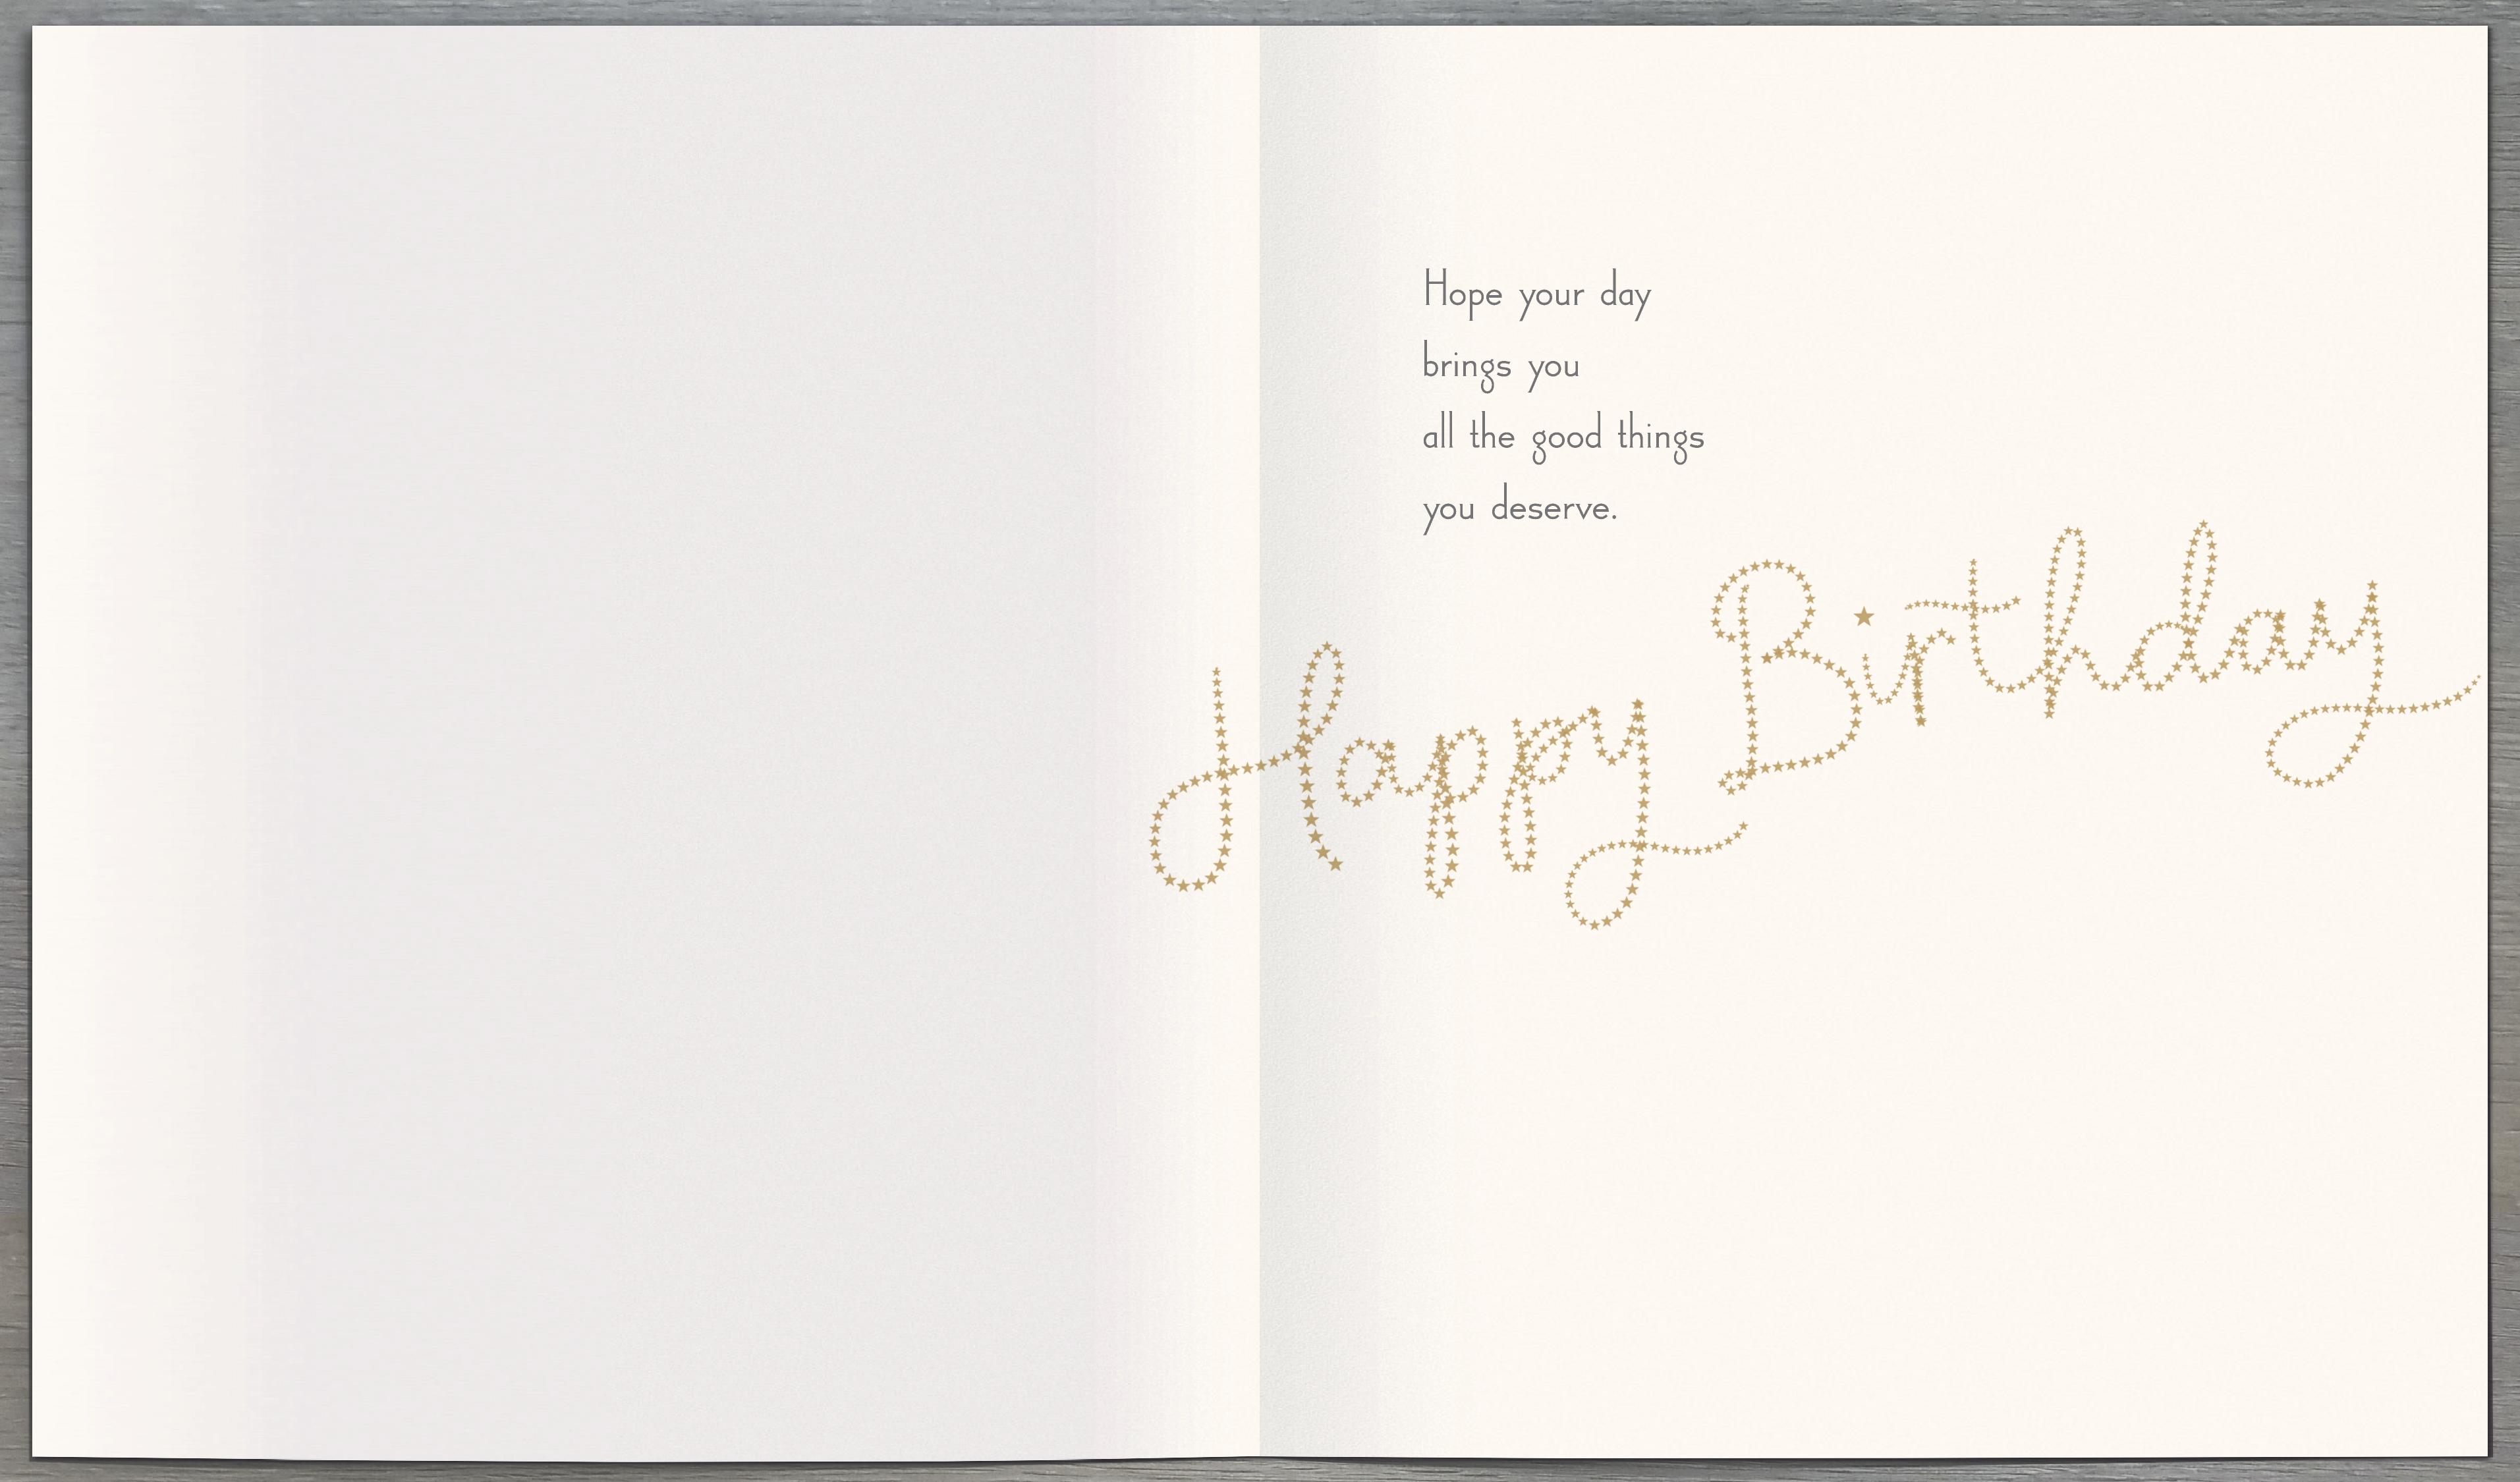 Hope your day
brings you
all the good things
you deserve.
Happy Birthday